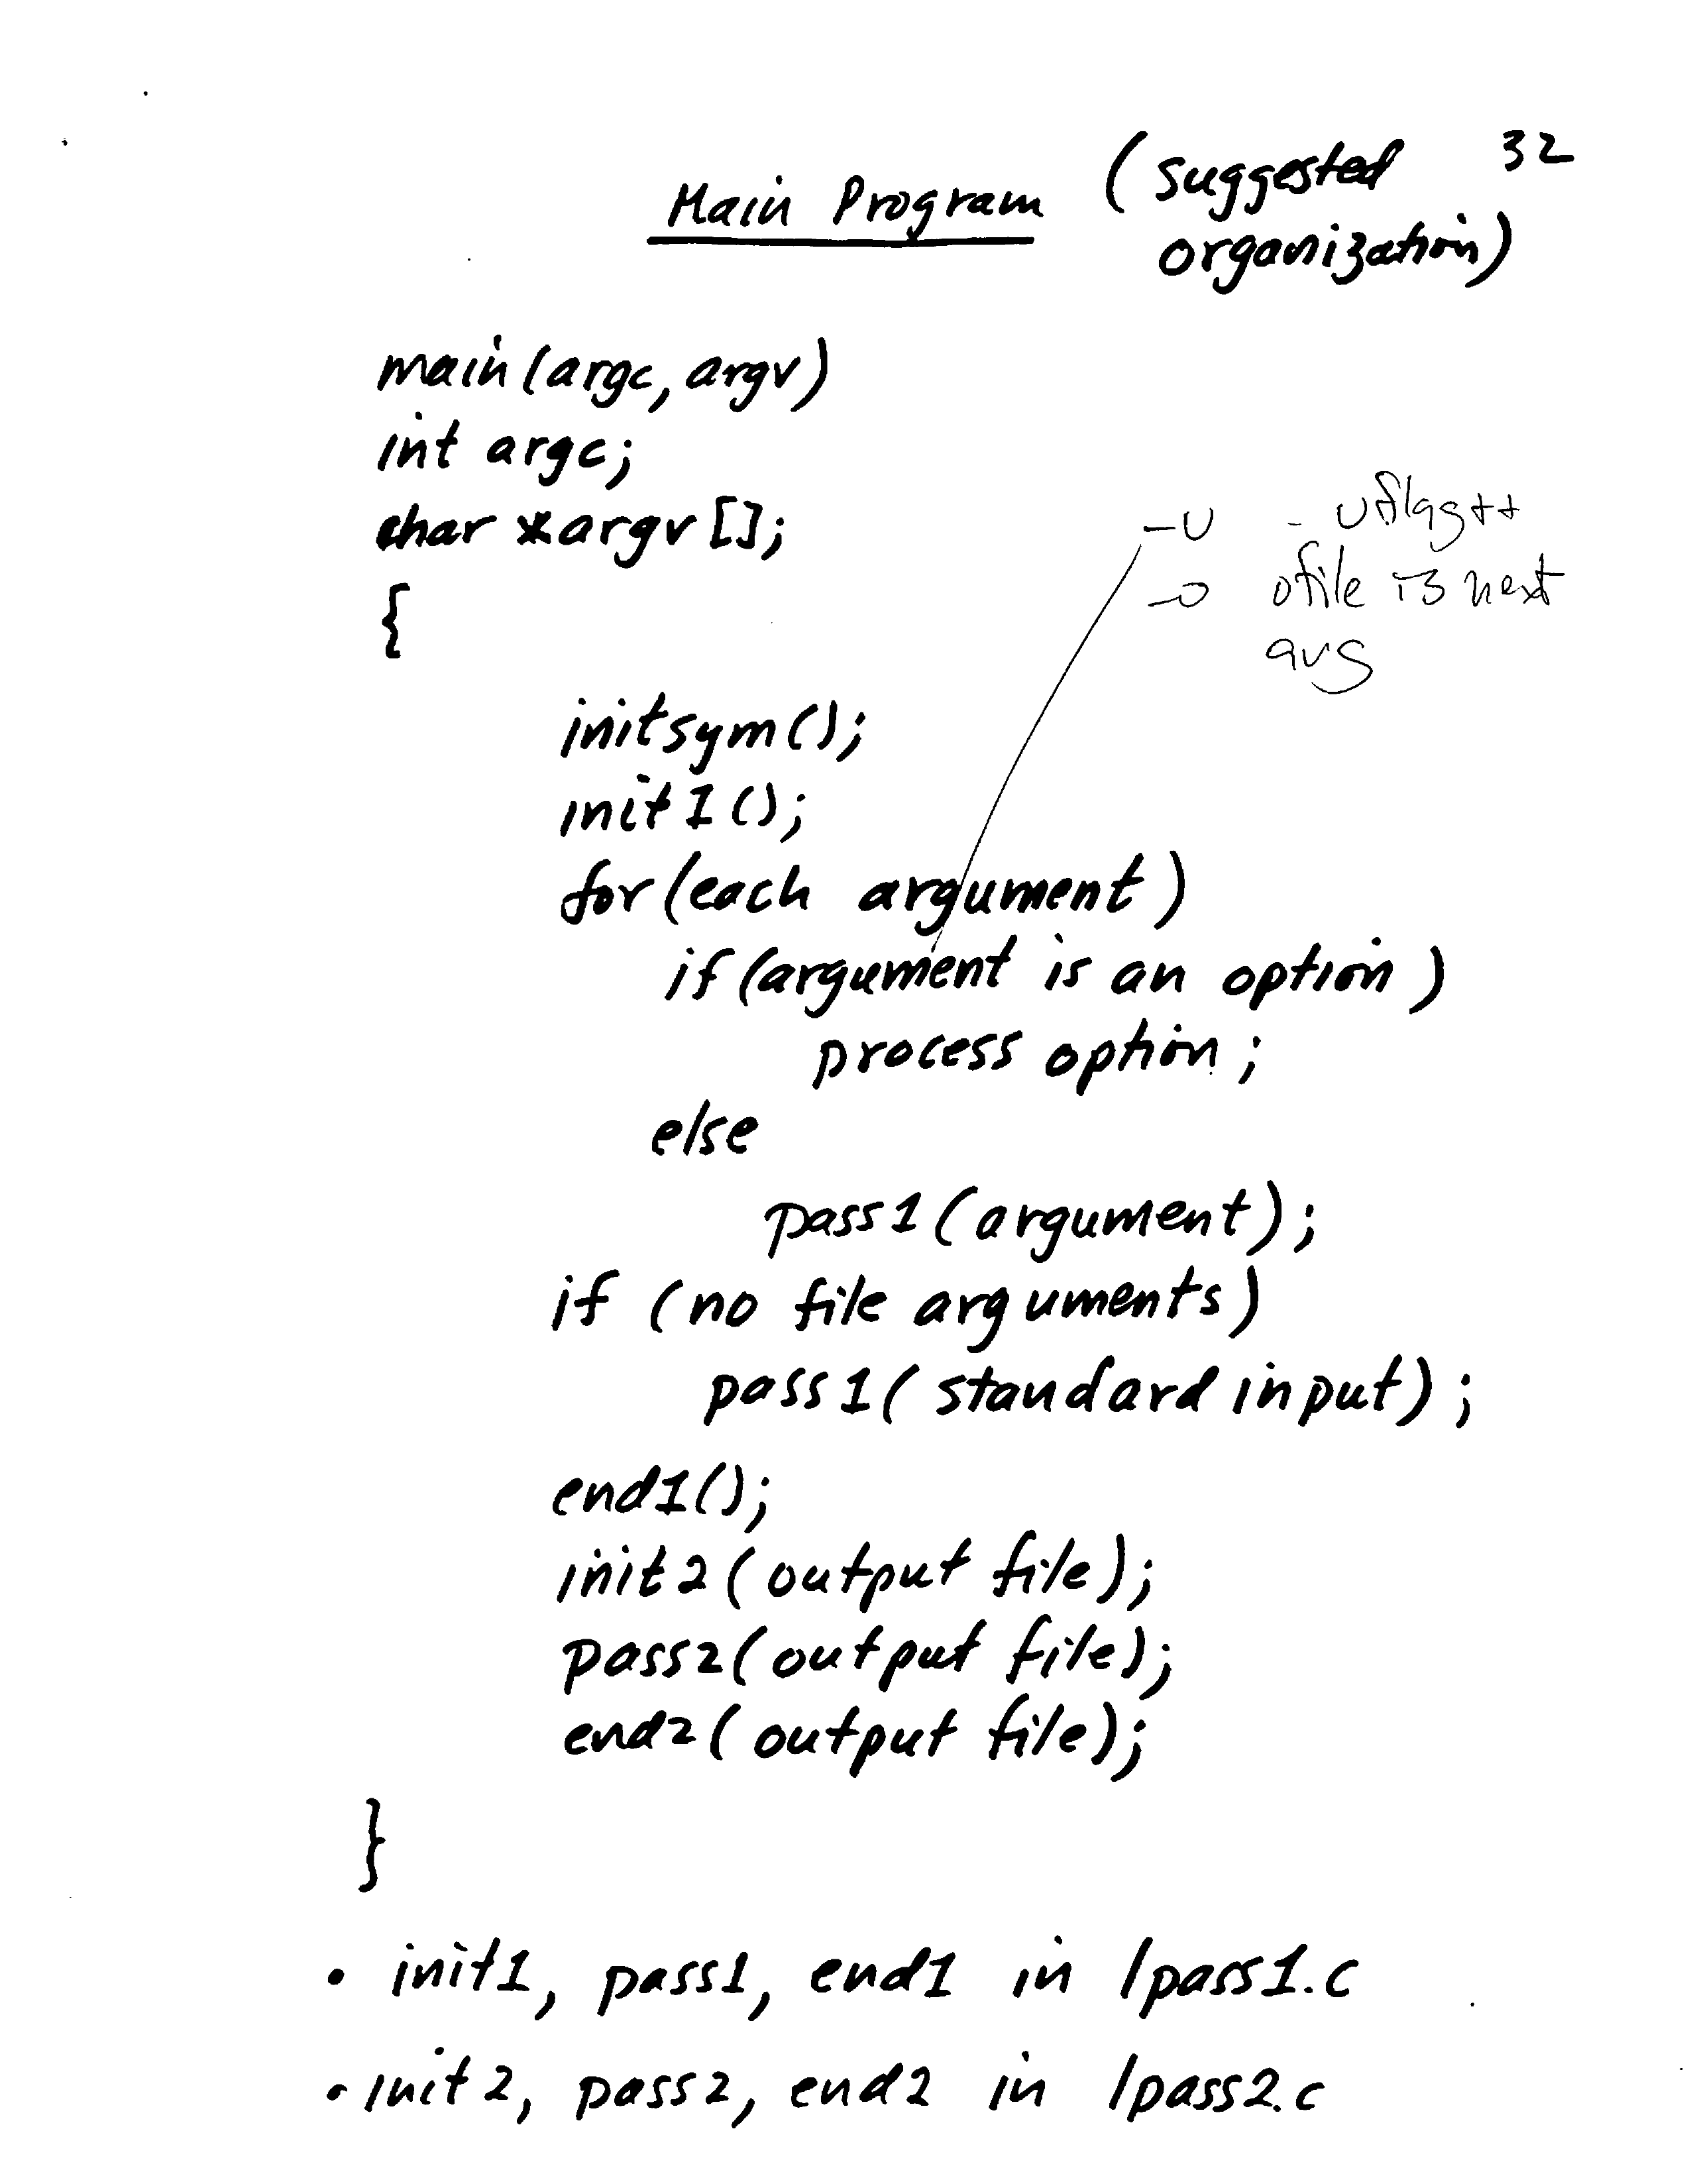 32
Main Program (suggested
organization)
main(argc, argv)
int argc;
char *argv[];
{
-U - Uflag++
-o ofile is next
arg
initsym();
init1();
for(each argument)
if(argument is an option)
process option;
else
pass1(argument);
if (no file arguments)
pass1(standard input);
end1();
init2(output file);
pass2(output file);
end2(output file);
}
• init1, pass1, end1 in lpass1.c
• init2, pass2, end2 in lpass2.c